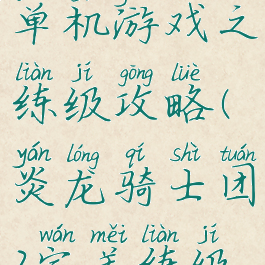 单机游戏之
liàn jí gōng lüè
练级攻略(
yán lóng qí shì tuán
炎龙骑士团
wán měi liàn jí